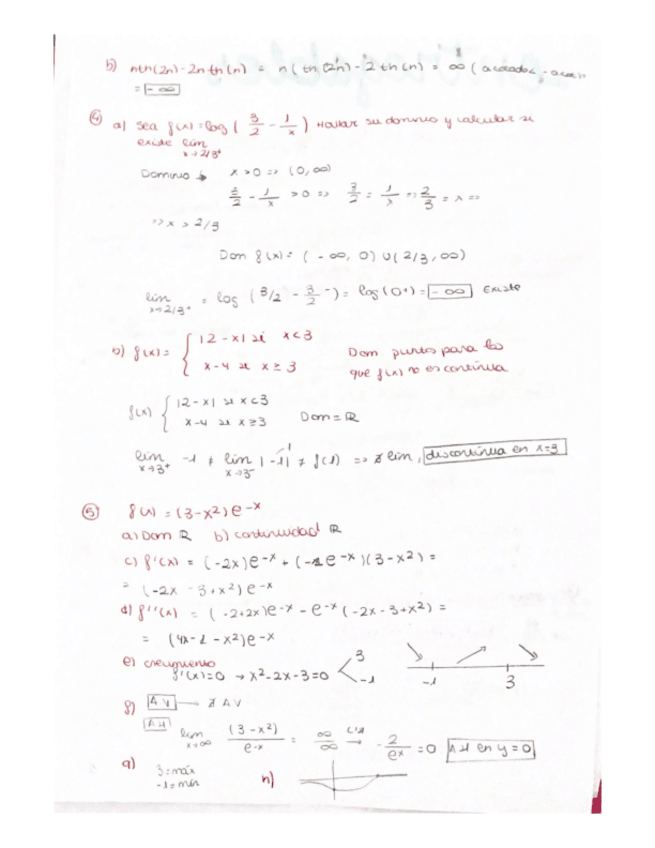 b) n th(2n) - 2n th(n) = n( th(2n) - 2 th(n) = ∞ (
= - ∞
④ a) Sea f(x) = log( 3/2 - 1/x ) Hallar su dominio y calcular si
existe lim x→2/3⁺
Dominio x > 0 => (0, ∞)
3/2 - 1/x > 0 => 3/2 = 1/x => 2/3 = x =>
=> x > 2/3
Dom f(x) = (-∞, 0) ∪ (2/3, ∞)
lim x→2/3⁺ = log ( 3/2 - 3/2⁻) = log(0⁺) = - ∞ Existe
b) f(x) = { |2-x| si x<3
x-4 si x ≥ 3
Dom puntos para los
que f(x) no es continua
f(x) { |2-x| si x<3
x-4 si x≥3
Dom = ℝ
lim x→3⁺ -1 ≠ lim x→3⁻ |-1| ≠ f(1) => ∄ lim, discontinua en x=3
⑤ f(x) = (3-x²)e^-x
a) Dom ℝ b) continuidad ℝ
c) f'(x) = (-2x)e^-x + (-e^-x)(3-x²) =
= (-2x - 3+x²) e^-x
d) f''(x) = (-2+2x)e^-x - e^-x (-2x-3+x²) =
= (4x-1-x²)e^-x
e) crecimiento
f'(x)=0 → x²-2x-3=0 < 3
-1
-1 3
f) AV → ∄ AV
AH
lim x→∞ (3-x²)/e-x = ∞/∞ L'H → -2/e^x = 0 AH en y=0
g) 3 = máx
-1 = mín
h)